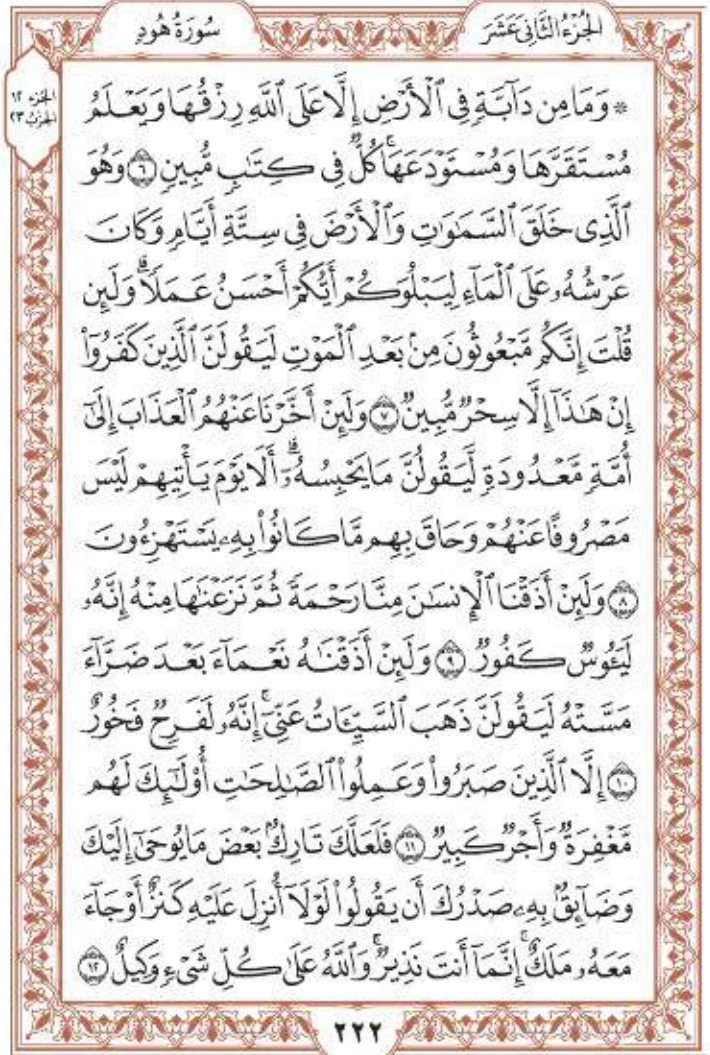 الجُزْءُ الثَّانِي عَشَرَ
سُورَةُ هُودٍ
الجزء ١٢
الحزب ٢٣
۞ وَمَا مِن دَآبَّةٍ فِي ٱلْأَرْضِ إِلَّا عَلَى ٱللَّهِ رِزْقُهَا وَيَعْلَمُ
مُسْتَقَرَّهَا وَمُسْتَوْدَعَهَاۚ كُلٌّ فِي كِتَٰبٍ مُّبِينٍ ٦ وَهُوَ
ٱلَّذِي خَلَقَ ٱلسَّمَٰوَٰتِ وَٱلْأَرْضَ فِي سِتَّةِ أَيَّامٍ وَكَانَ
عَرْشُهُۥ عَلَى ٱلْمَآءِ لِيَبْلُوَكُمْ أَيُّكُمْ أَحْسَنُ عَمَلًاۗ وَلَئِن
قُلْتَ إِنَّكُم مَّبْعُوثُونَ مِنۢ بَعْدِ ٱلْمَوْتِ لَيَقُولَنَّ ٱلَّذِينَ كَفَرُوٓا۟
إِنْ هَٰذَآ إِلَّا سِحْرٌ مُّبِينٌ ٧ وَلَئِنْ أَخَّرْنَا عَنْهُمُ ٱلْعَذَابَ إِلَىٰٓ
أُمَّةٍ مَّعْدُودَةٍ لَّيَقُولُنَّ مَا يَحْبِسُهُۥٓۗ أَلَا يَوْمَ يَأْتِيهِمْ لَيْسَ
مَصْرُوفًا عَنْهُمْ وَحَاقَ بِهِم مَّا كَانُوا۟ بِهِۦ يَسْتَهْزِءُونَ
٨ وَلَئِنْ أَذَقْنَا ٱلْإِنسَٰنَ مِنَّا رَحْمَةً ثُمَّ نَزَعْنَٰهَا مِنْهُ إِنَّهُۥ
لَيَـُٔوسٌ كَفُورٌ ٩ وَلَئِنْ أَذَقْنَٰهُ نَعْمَآءَ بَعْدَ ضَرَّآءَ
مَسَّتْهُ لَيَقُولَنَّ ذَهَبَ ٱلسَّيِّـَٔاتُ عَنِّيٓۚ إِنَّهُۥ لَفَرِحٌ فَخُورٌ
١٠ إِلَّا ٱلَّذِينَ صَبَرُوا۟ وَعَمِلُوا۟ ٱلصَّٰلِحَٰتِ أُو۟لَٰٓئِكَ لَهُم
مَّغْفِرَةٌ وَأَجْرٌ كَبِيرٌ ١١ فَلَعَلَّكَ تَارِكٌۢ بَعْضَ مَا يُوحَىٰٓ إِلَيْكَ
وَضَآئِقٌۢ بِهِۦ صَدْرُكَ أَن يَقُولُوا۟ لَوْلَآ أُنزِلَ عَلَيْهِ كَنزٌ أَوْ جَآءَ
مَعَهُۥ مَلَكٌۚ إِنَّمَآ أَنتَ نَذِيرٌۚ وَٱللَّهُ عَلَىٰ كُلِّ شَيْءٍ وَكِيلٌ ١٢
٢٢٢